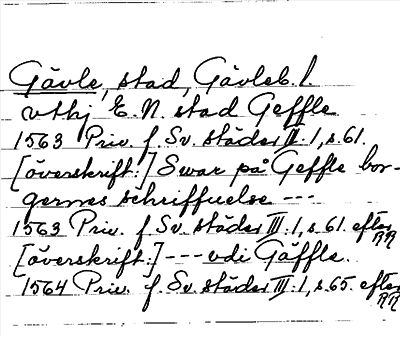 Gävle, stad, Gävleb. l.
vthj E. N. stad Geffle
1563 Priv. f. Sv. städer III:1, s. 61.
[överskrift:] Swar på Geffle bor-
gernes schriffuelse ---
1563 Priv. f. Sv. städer III:1, s. 61. efter RR
[överskrift:] --- vdi Gäffle.
1564 Priv. f. Sv. städer III:1, s. 65. efter RR